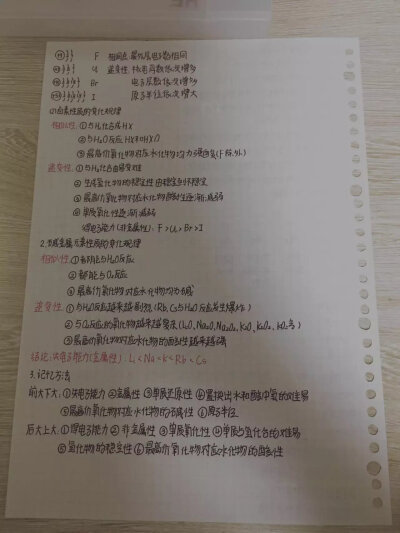 F 相同点:最外层电子数相同
Cl 递变性:核电荷数依次增多
Br 电子层数依次增多
I 原子半径依次增大
(2)卤素性质的变化规律
相似性:①与H₂化合成HX
②与H₂O反应HX和HXO
③最高价氧化物对应水化物均为强酸(F除外)
递变性:①与H₂化合由易变难
②生成氢化物的稳定性由稳定到不稳定
③最高价氧化物对应水化物酸性逐渐减弱
④单质氧化性逐渐减弱
得电子能力(非金属性):F>Cl>Br>I
2.碱金属元素性质的变化规律
相似性:①都能与H₂O反应
②都能与O₂反应
③最高价氧化物对应水化物均为碱
递变性:①与H₂O反应越来越剧烈(Rb、Cs与H₂O反应发生爆炸)
②与O₂反应的氧化物越来越复杂(Li₂O、Na₂O、Na₂O₂、K₂O、K₂O₂、KO₂等)
③最高价氧化物对应水化物的碱性越来越强
结论:失电子能力(金属性):Li<Na<K<Rb<Cs
3.记忆方法
前大下大:①失电子能力 ②金属性 ③单质还原性 ④置换出水和酸中氢的难易
⑤最高价氧化物对应水化物的碱性 ⑥原子半径
后大上大:①得电子能力 ②非金属性 ③单质氧化性 ④单质与氢化合的难易
⑤氢化物的稳定性 ⑥最高价氧化物对应水化物的酸性